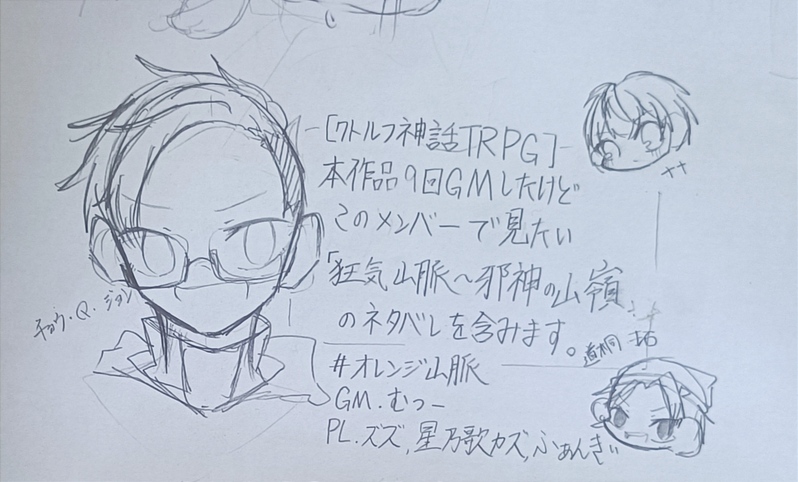 -[クトルフ神話TRPG]-
本作品9回GMしたけど
このメンバーで見たい
「狂気山脈〜邪神の山嶺」
のネタバレを含みます。
#オレンジ山脈
GM.むつー
PL.ズズ,星乃歌カズ,ふぁんきぃ
チョウ・Q・ジョン
道桐 坊